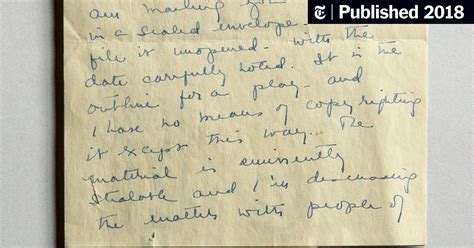 T | Published 2018
am mailing you
in a sealed envelope -
file it unopened - with the
date carefully noted. It is the
outline for a play - and
I have no means of copyrighting
it except this way. The
material is eminently
stealable and I in discussing
the matter with people of